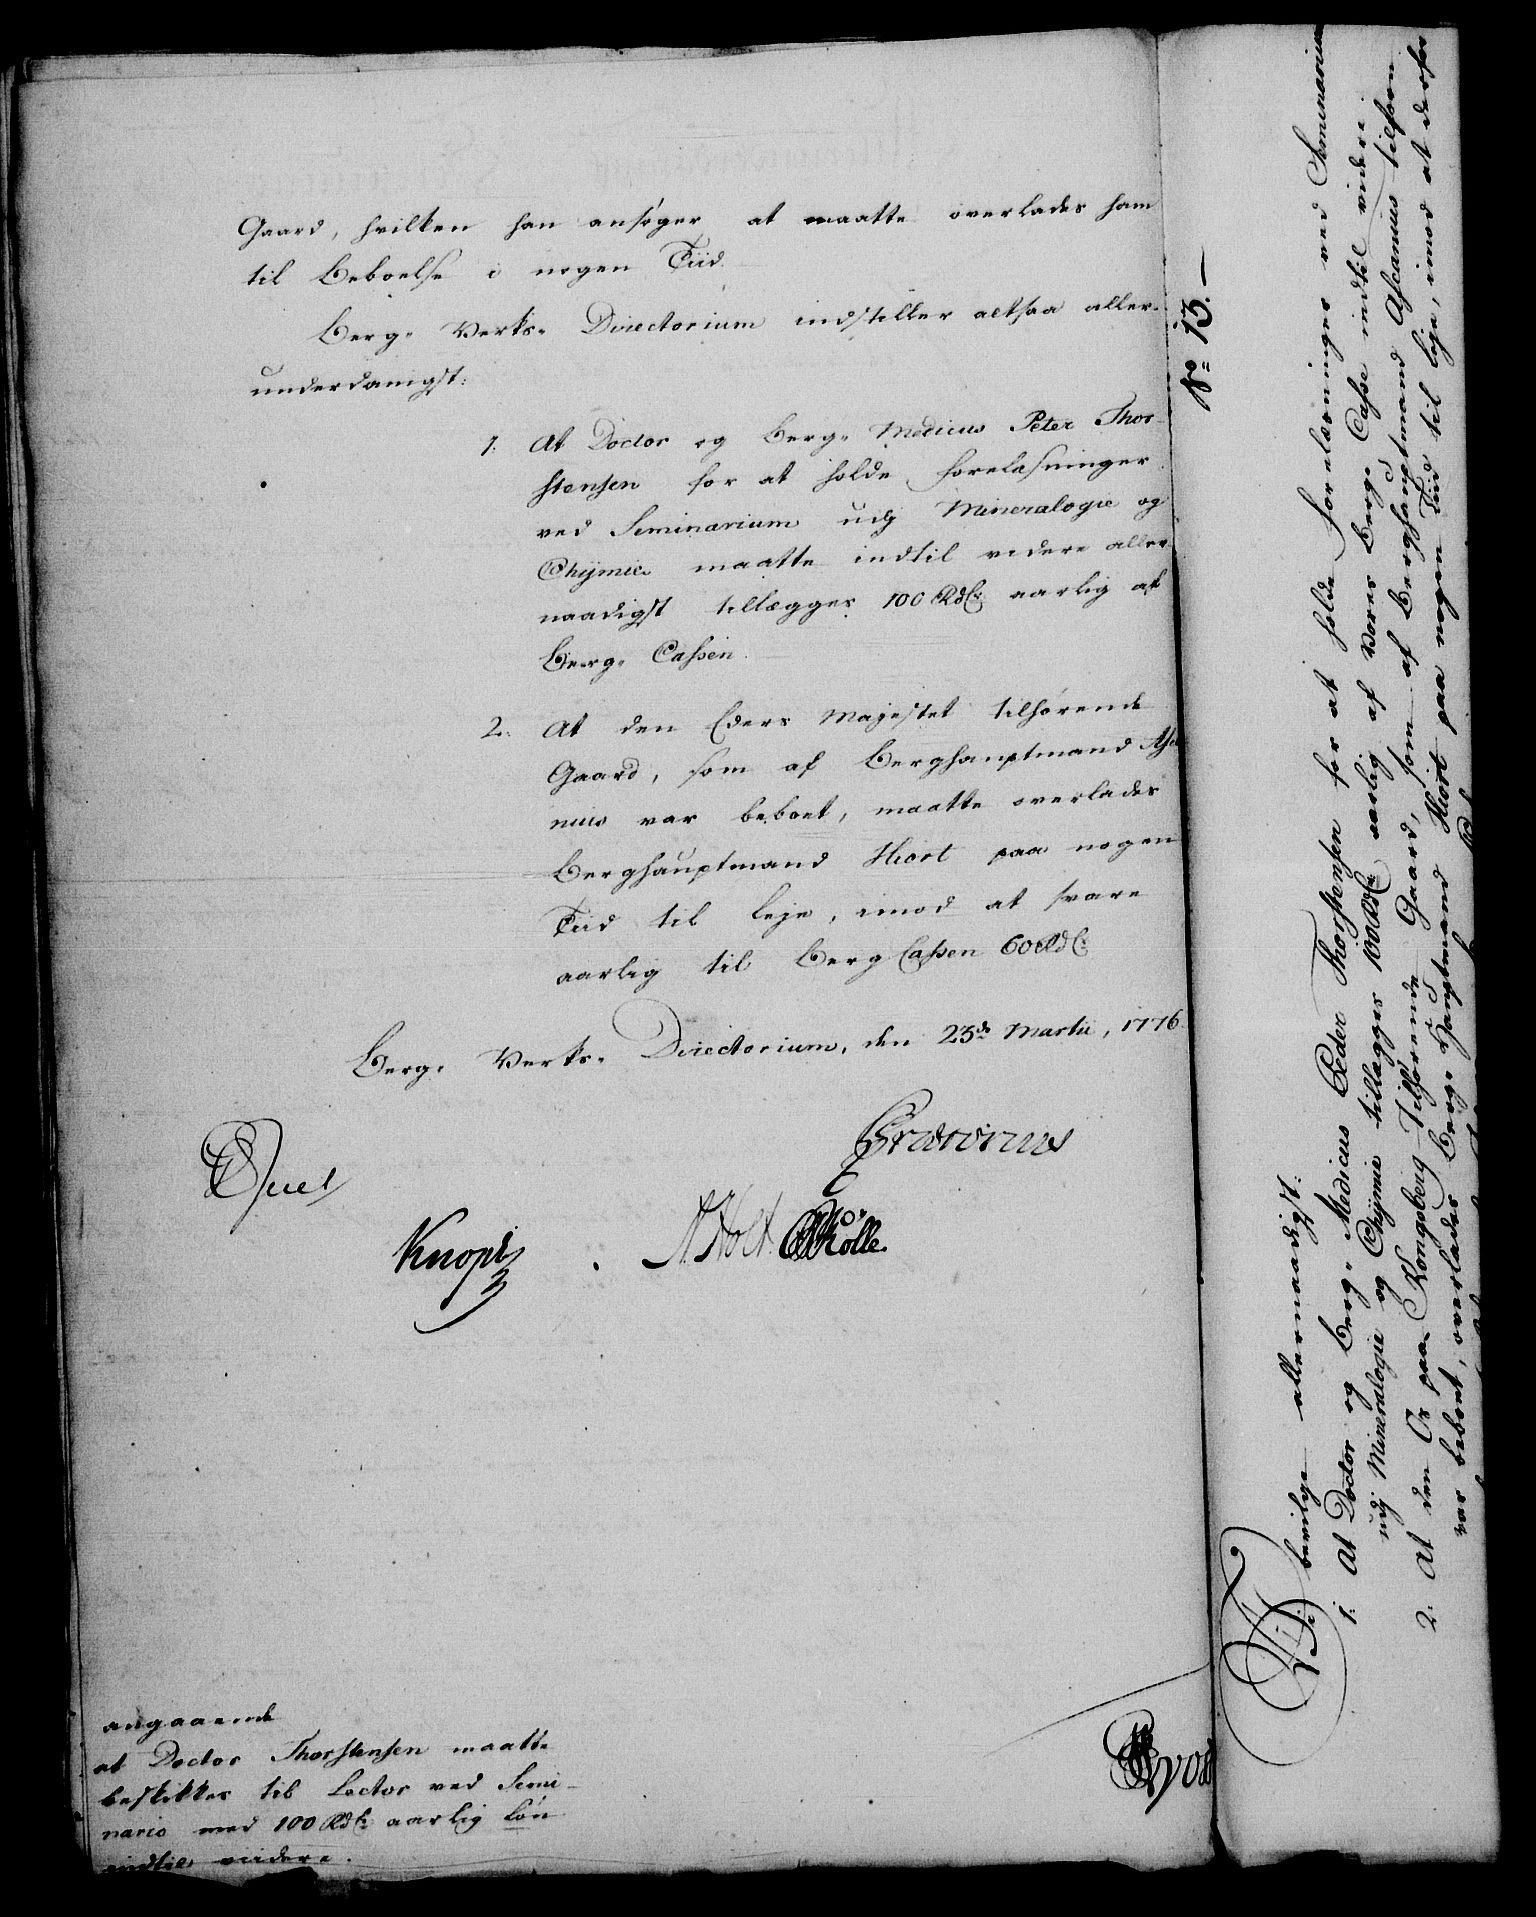 Gaard, hvilken han ansøger at maatte overlades ham
til Beboelse i nogen Tiid.
Berg- Verks- Directorium indstiller altsaa aller-
underdanigst:
1. At Doctor og Berg- Medicus Peter Thor-
stensen for at holde forelæsninger
ved Seminarium udj Mineralogie og
Chijmie maatte indtil videre aller
naadigst tillægges 100 Rdlr aarlig af
Berg- Cassen.
2. At den Eders Majestet tilhørende
Gaard, som af Berghauptmand Asca
nius var beboet, maatte overlades
Berghauptmand Hiort paa nogen
Tiid til leje, imod at svare
aarlig til Berg Cassen 60 Rdlr
Berg- Verks- Directorium, den 23de Martii, 1776.
Juel
Prætorius
Knoph
N. Holt
Kølle.
angaaende
at Doctor Thorstensen maatte
beskikkes til Lector ved Semi-
nario med 100 Rdlr aarlig Løn
indtil videre.
No 13.-
Vi bevilge allernaadigst:
1: At Doctor og Berg- Medicus Peder Thorstensen for at holde forelæsninger ved Seminarium
udj Mineralogie og Chijmie tillægges 100 Rdlr aarlig af Vores Berg- Casse indtil videre
2: At den Os paa Kongsberg Tilhørende Gaard, som af Berghauptmand Ascanius tilforn
var beboet, overlades Berg- Hauptmand Hiort paa nogen Tiid til leje, imod at derfor